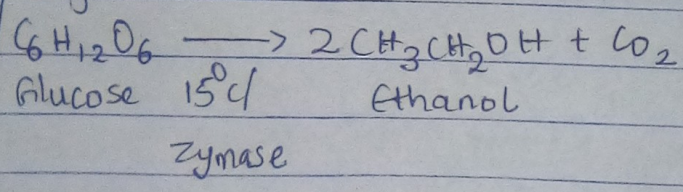 C₆H₁₂O₆ ⟶ 2CH₃CH₂OH + CO₂
Glucose 15°C/ Ethanol
Zymase